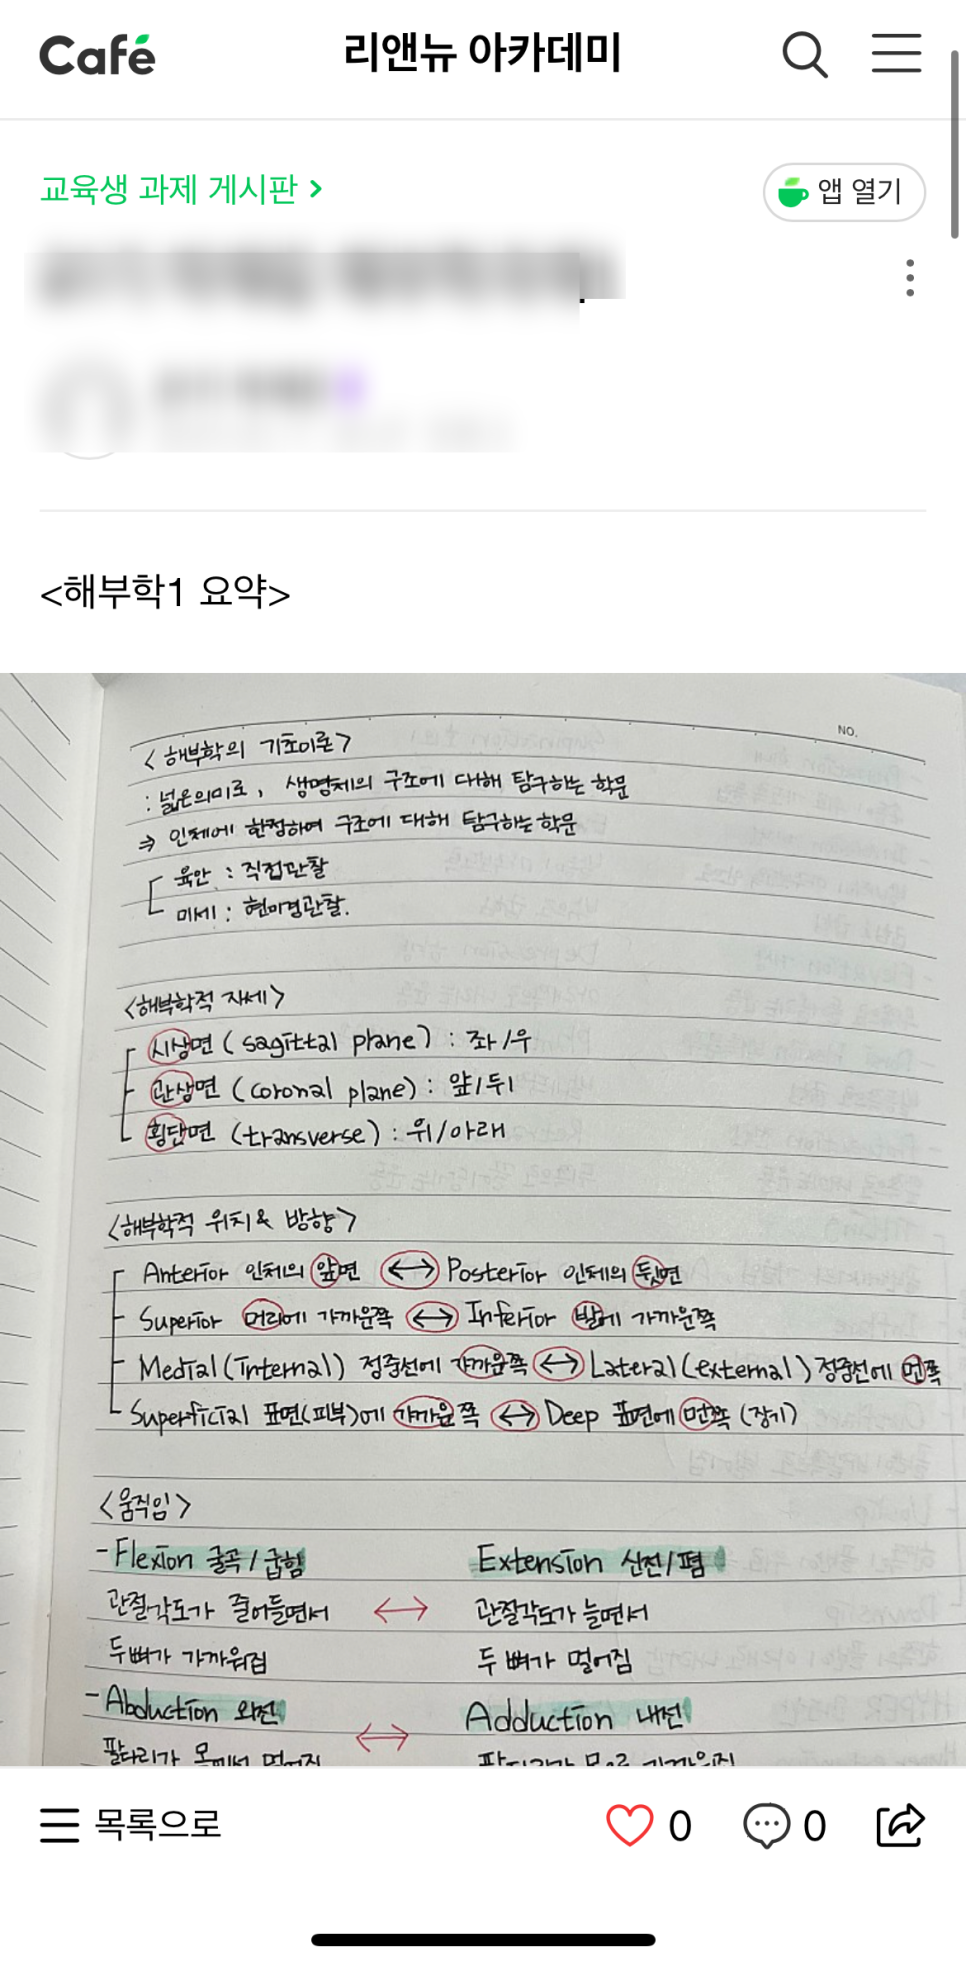 Café
리앤뉴 아카데미
교육생 과제 게시판
앱 열기
<해부학1 요약>
NO.
<해부학의 기초이론>
: 넓은의미로, 생명체의 구조에 대해 탐구하는 학문
⇒ 인체에 한정하여 구조에 대해 탐구하는 학문
육안 : 직접관찰
미세 : 현미경관찰.
<해부학적 자세>
시상면 (sagittal plane) : 좌/우
관상면 (coronal plane) : 앞/뒤
횡단면 (transverse) : 위/아래
<해부학적 위치 & 방향>
Anterior 인체의 앞면 ↔ Posterior 인체의 뒷면
Superior 머리에 가까운쪽 ↔ Inferior 발에 가까운쪽
Medial(internal) 정중선에 가까운쪽 ↔ Lateral(external) 정중선에 먼쪽
Superficial 표면(피부)에 가까운쪽 ↔ Deep 표면에 먼쪽 (장기)
<움직임>
- Flexion 굴곡/굽힘 Extension 신전/폄
관절각도가 줄어들면서 ↔ 관절각도가 늘면서
두뼈가 가까워짐 두 뼈가 멀어짐
- Abduction 외전 ↔ Adduction 내전
팔다리가 몸에서 멀어짐 팔다리가 몸으로 가까워짐
목록으로
0
0